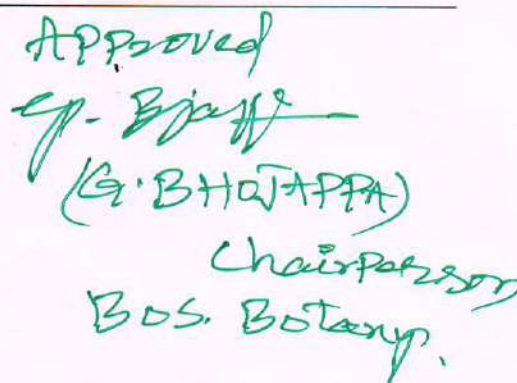 Approved
G. Bjapp
(G. BHOJAPPA)
Chairperson
BOS. Botany.